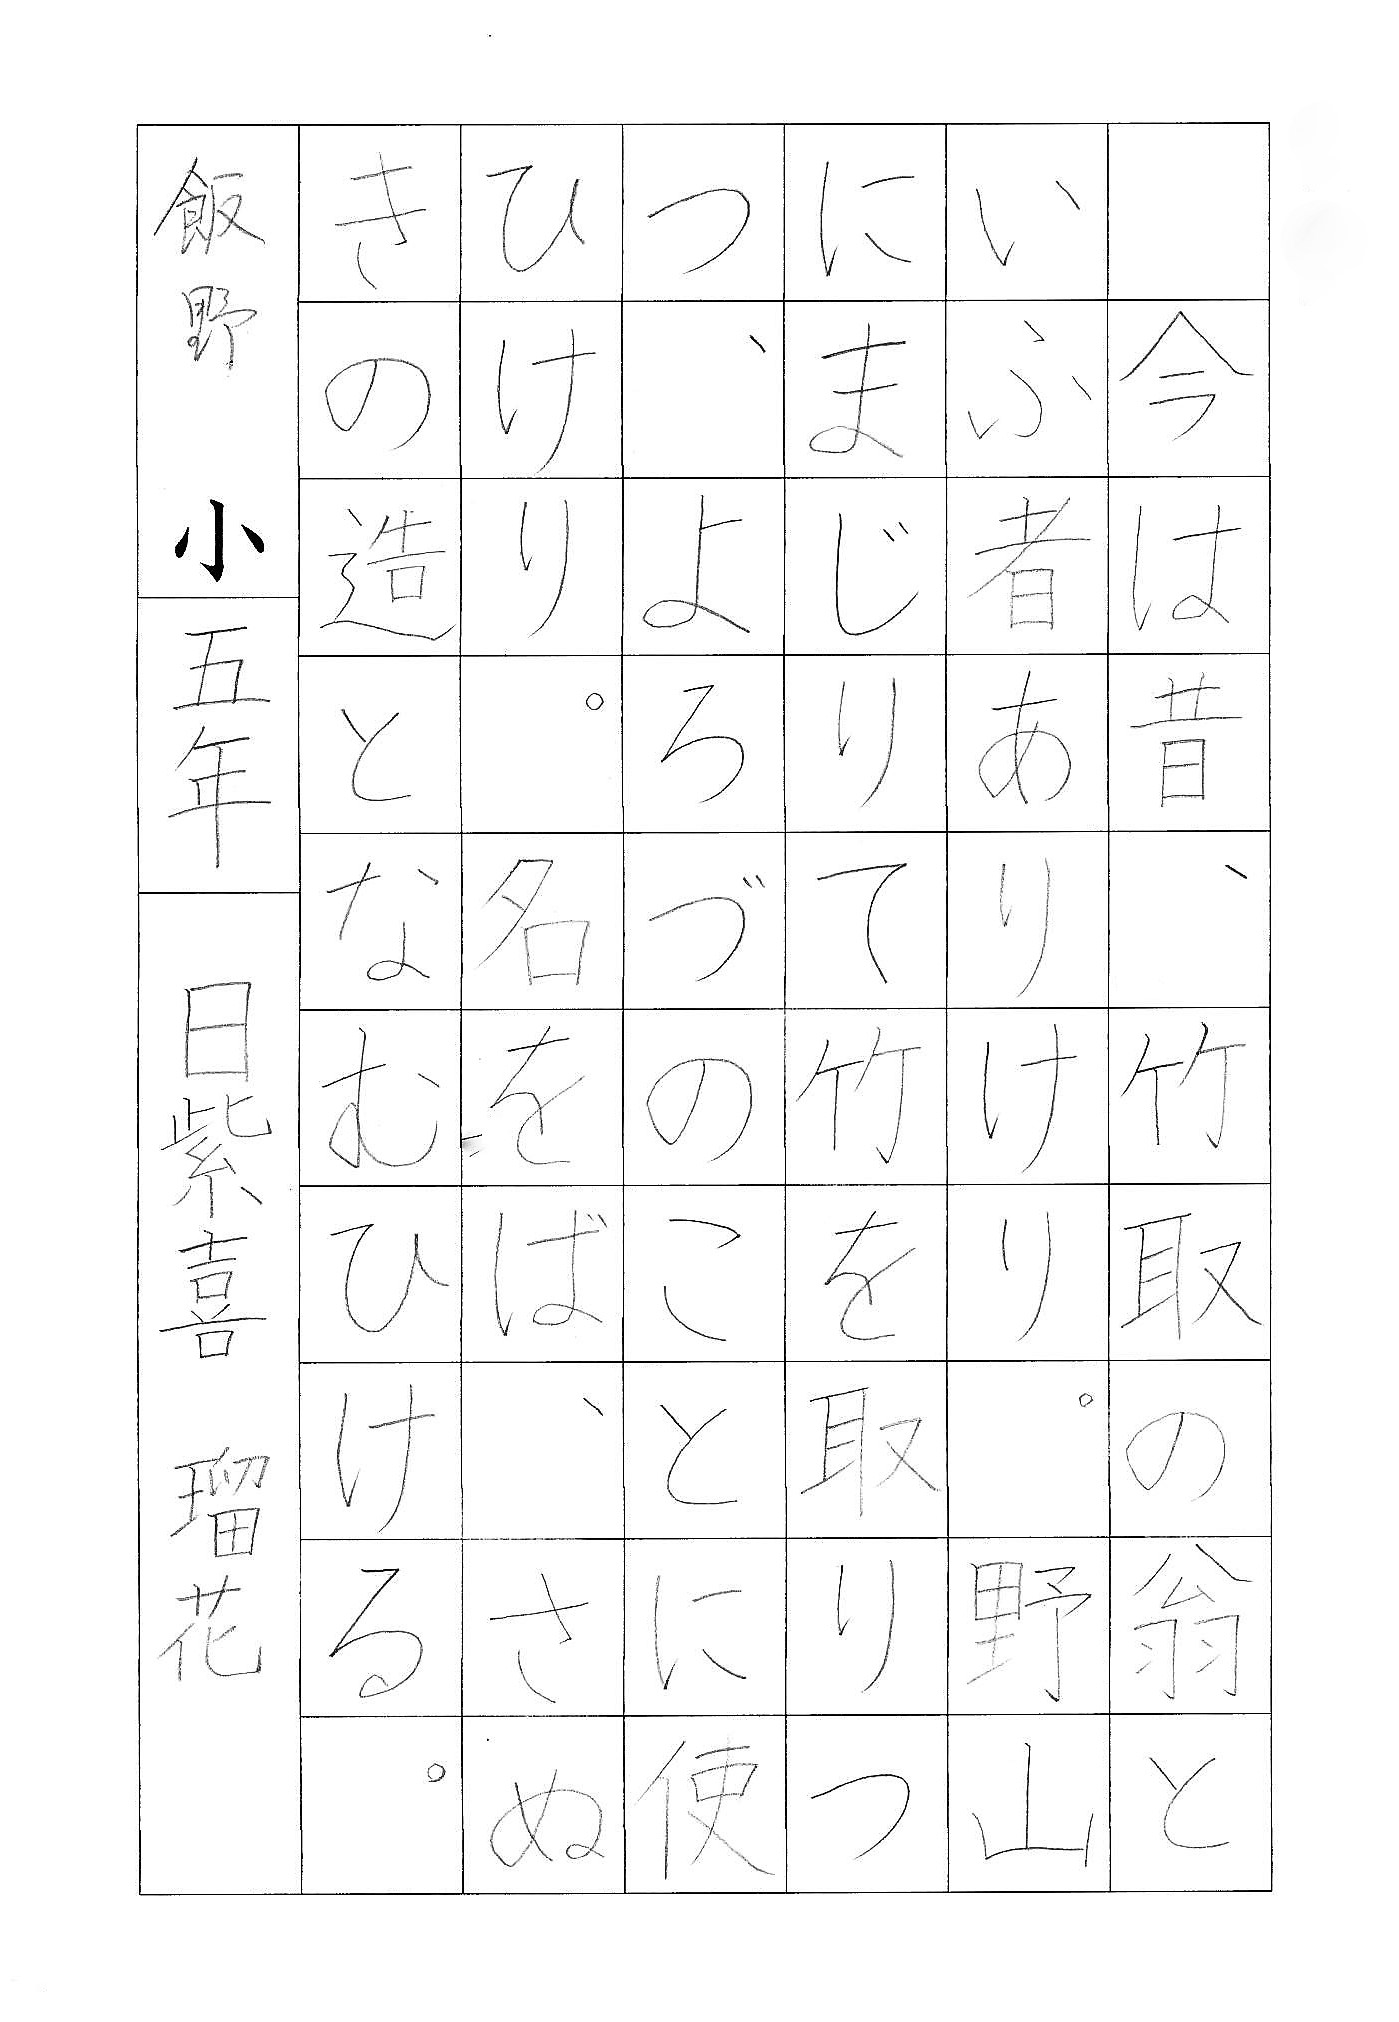 今は昔、竹取の翁と
いふ者ありけり。野山
にまじりて竹を取りつ
つ、よろづのことに使
ひけり。名をば、さぬ
きの造となむひける。
飯野小 五年 日紫喜 瑠花